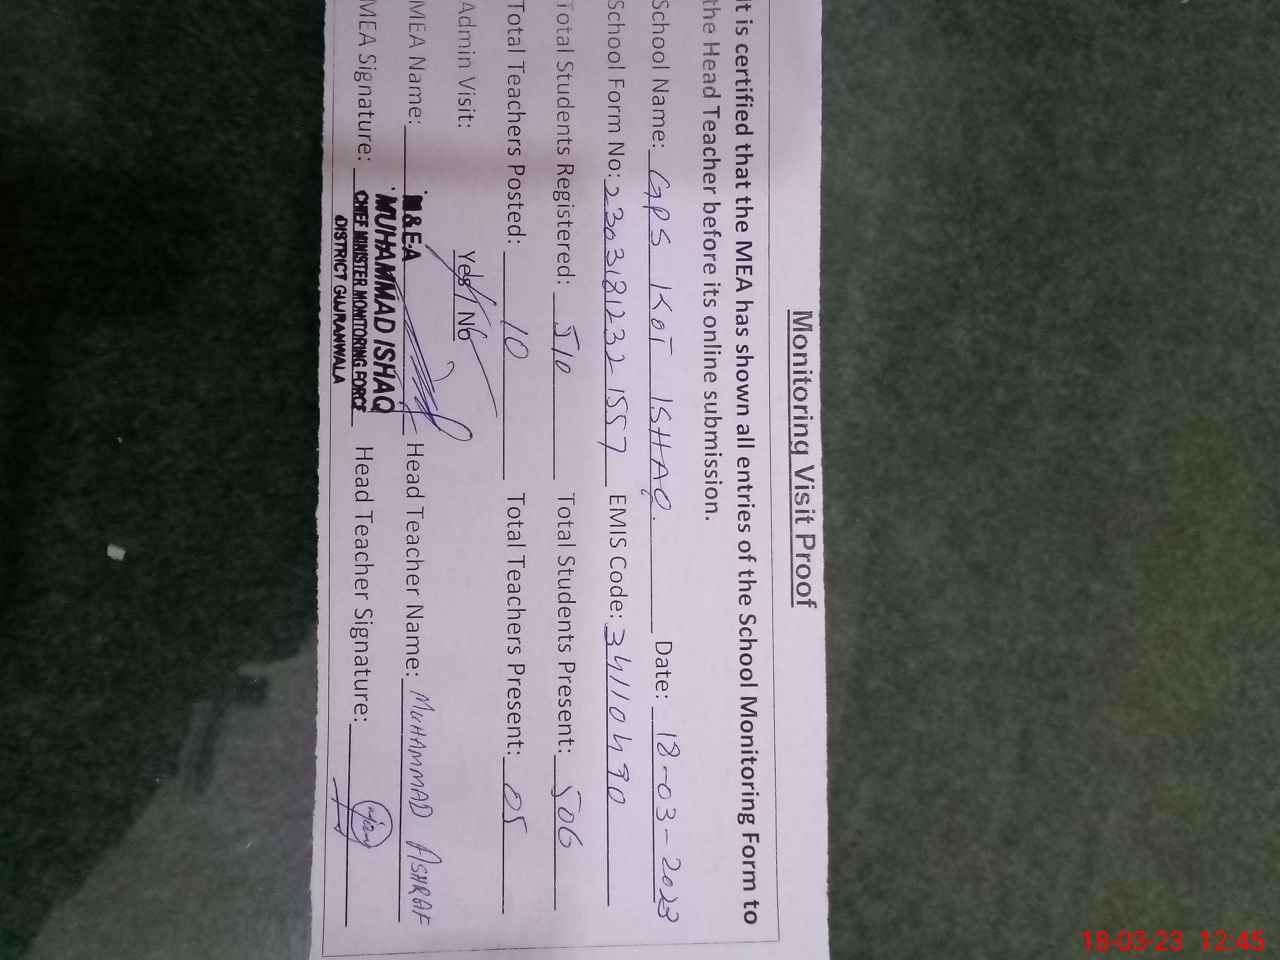 Monitoring Visit Proof
It is certified that the MEA has shown all entries of the School Monitoring Form to
the Head Teacher before its online submission.
School Name: GPS KOT ISHAQ. Date: 18-03-2023
School Form No: 2303181232 1557 EMIS Code: 34110490
Total Students Registered: 510 Total Students Present: 506
Total Teachers Posted: 10 Total Teachers Present: 05
Admin Visit: Yes/No
MEA Name: M&EA Head Teacher Name: MUHAMMAD ASHRAF
MUHAMMAD ISHAQ
MEA Signature: CHIEF MINISTER MONITORING FORCE Head Teacher Signature:
DISTRICT GUJRANWALA
18-03-23 12:45